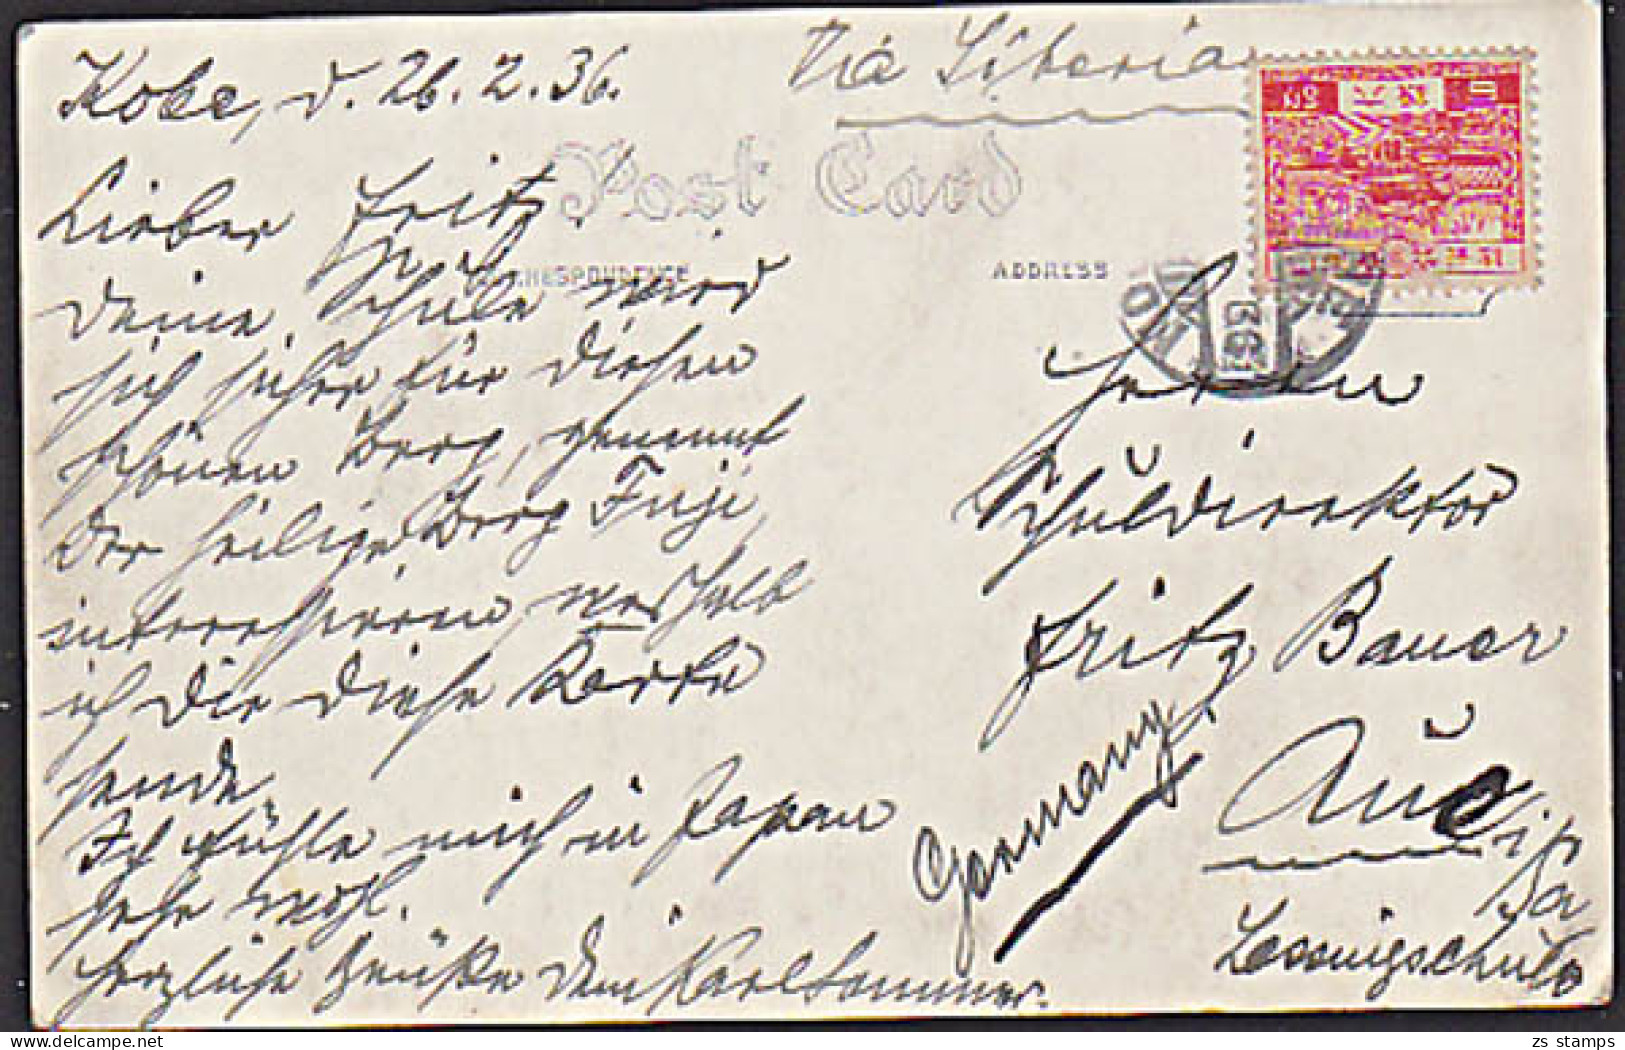 Kobe, d. 26.2.36.
Via Siberia
Post Card
CORRESPONDENCE
ADDRESS
Lieber Fritz!
Deine Schule wird
sich sicher für diesen
schönen Berg, genannt
der heilige Berg Fuji,
interessieren weshalb
ich Dir diese Karte
sende.
Ich fühle mich in Japan
sehr wohl.
Herzliche Grüße Dein Karl Sommer.
Herrn
Schuldirektor
Fritz Bauer
Aue
i/Sa
Lessingschule
Germany.
zs stamps